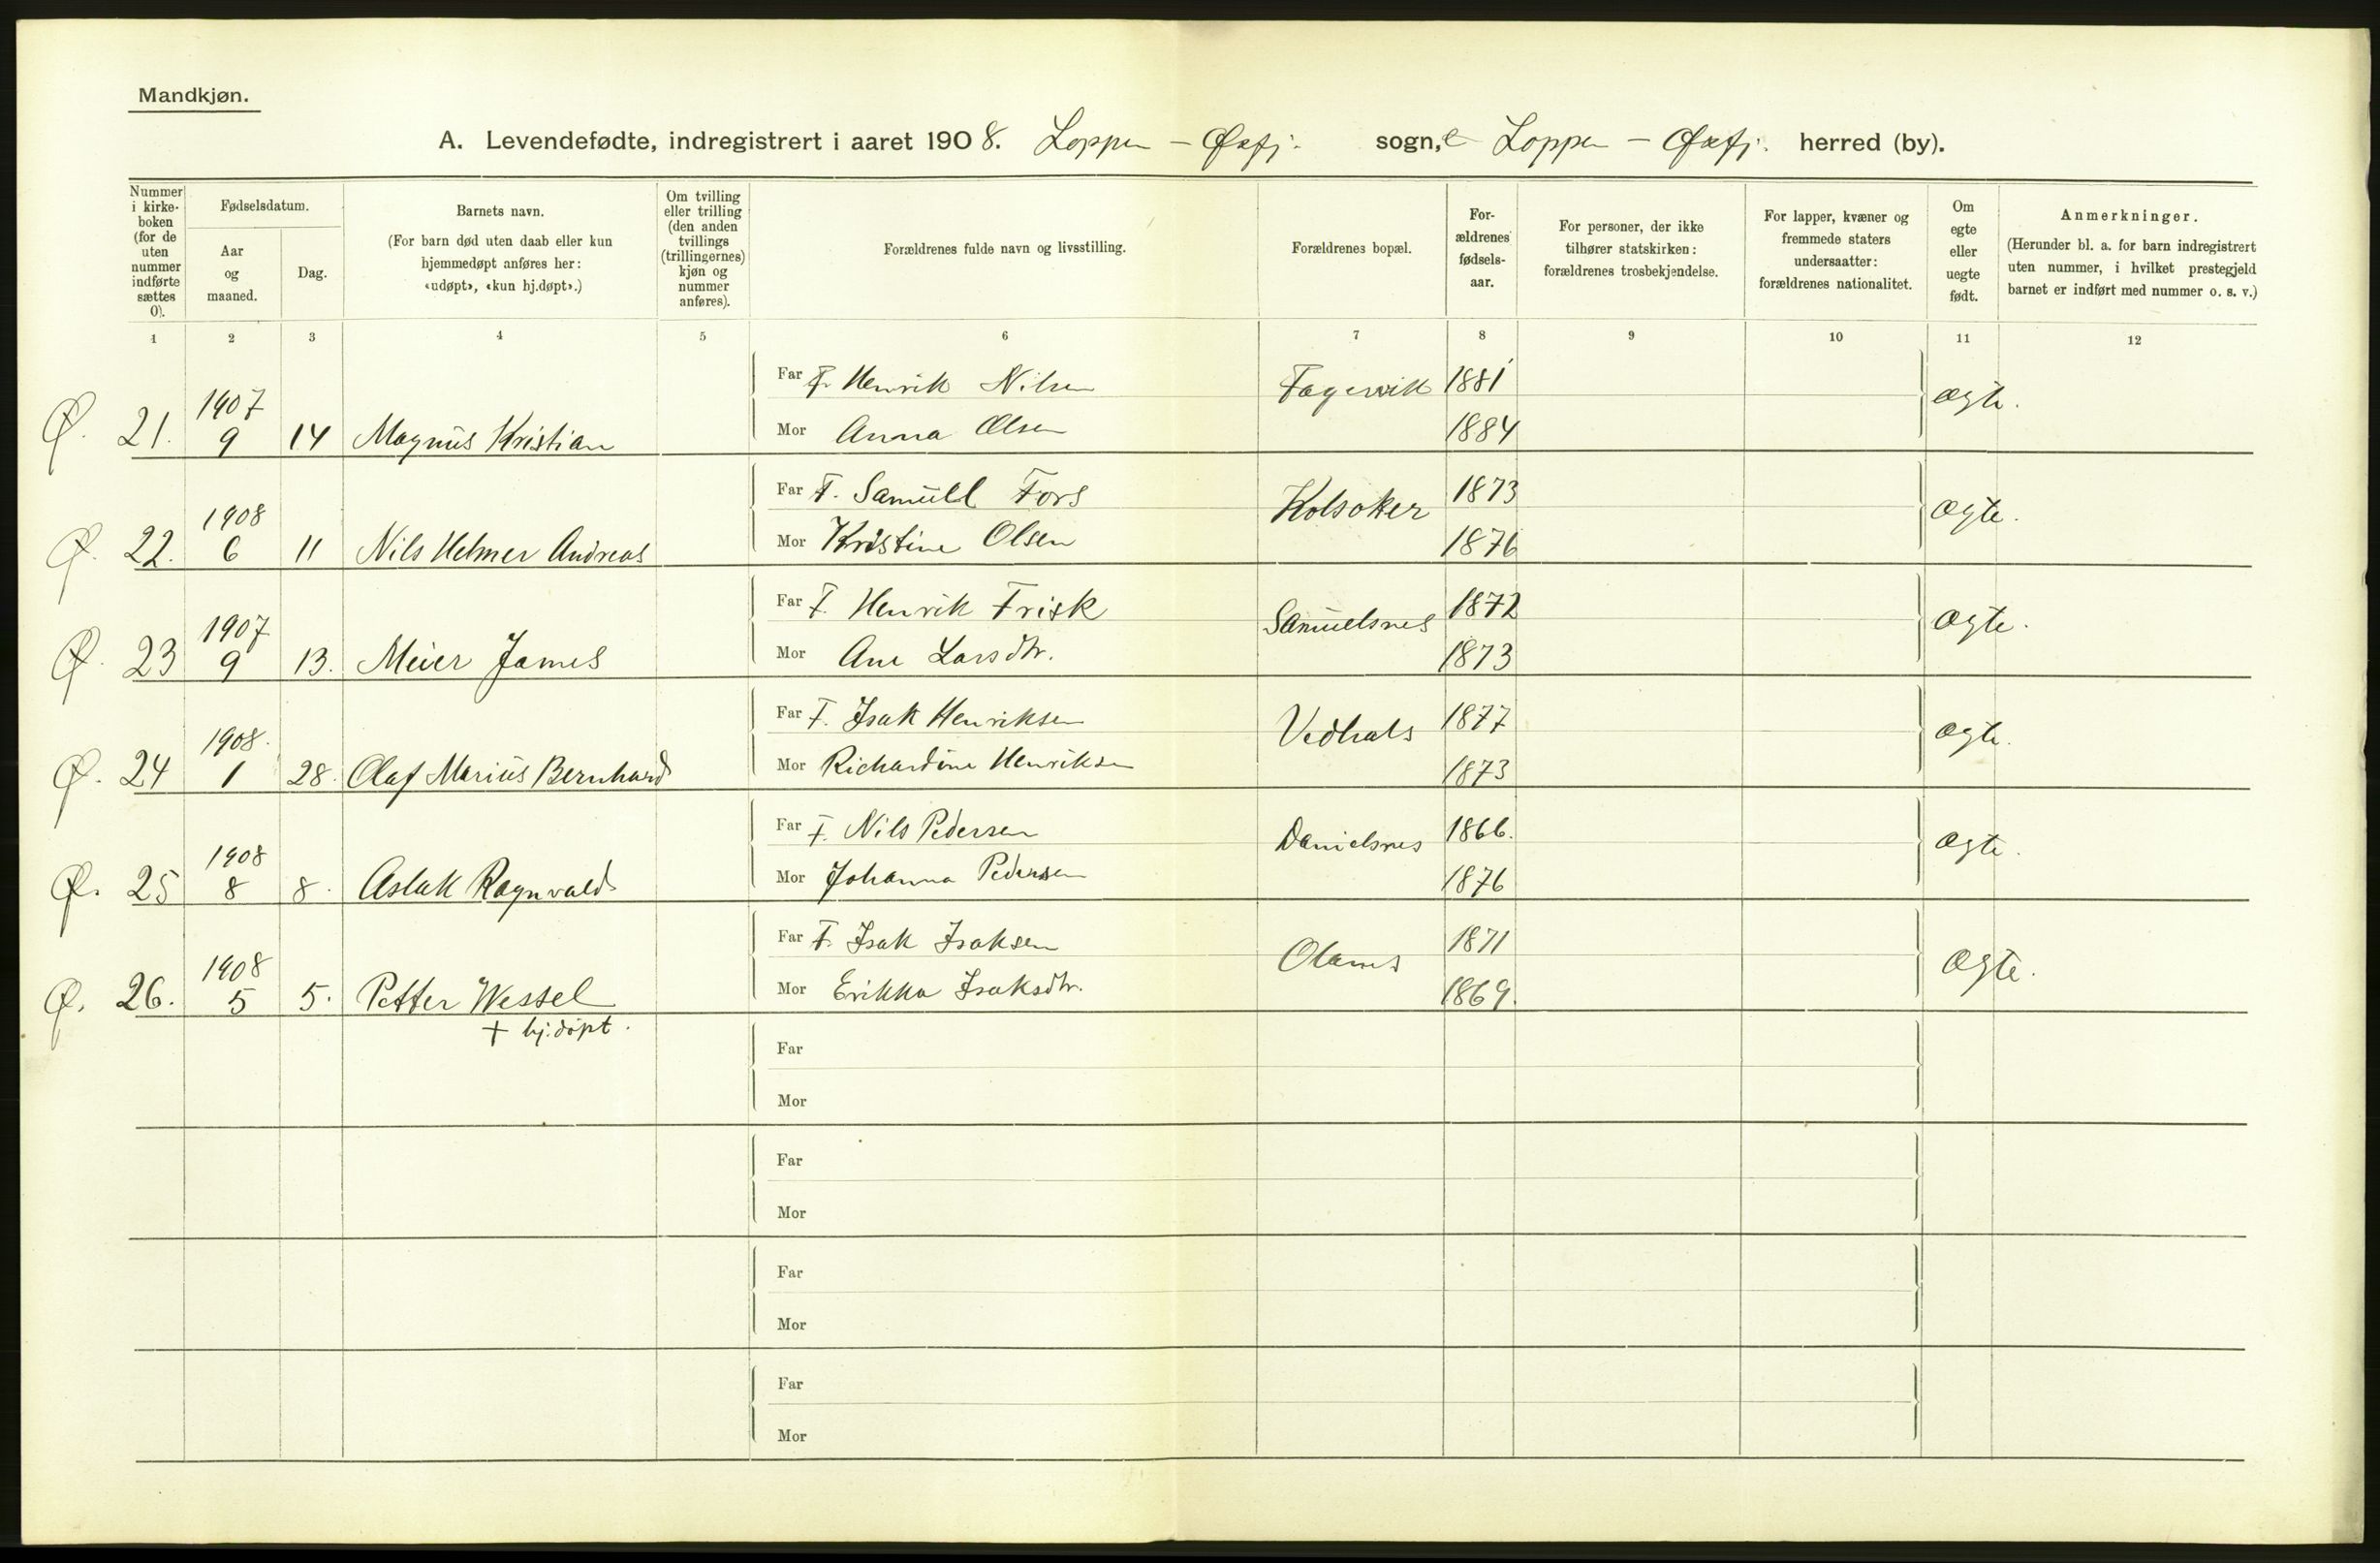 Mandkjøn.
A. Levendefødte, indregistrert i aaret 1908. Loppen - Øxfj. sogn,e Loppen - Øxfj. herred (by).
Nummer i kirke-boken (for de uten nummer indførte sættes 0).
Fødselsdatum.
Aar og maaned.
Dag.
Barnets navn.
(For barn død uten daab eller kun hjemmedøpt anføres her: «udøpt», «kun hj.døpt».)
Om tvilling eller trilling (den anden tvillings (trillingernes) kjøn og nummer anføres).
Forældrenes fulde navn og livsstilling.
Forældrenes bopæl.
For-ældrenes fødsels-aar.
For personer, der ikke tilhører statskirken: forældrenes trosbekjendelse.
For lapper, kvæner og fremmede staters undersaatter: forældrenes nationalitet.
Om egte eller uegte født.
Anmerkninger.
(Herunder bl. a. for barn indregistrert uten nummer, i hvilket prestegjeld barnet er indført med nummer o. s. v.)
1 2 3 4 5 6 7 8 9 10 11 12
Far F. Henrik Nilsen Fagervik 1881
Ø. 21. 1907 9 14 Magnus Kristian ægte.
Mor Anna Olsen 1884
Far F. Samuel Fors Kolsaker 1873
Ø. 22. 1908 6 11 Nils Helmer Andreas ægte.
Mor Kristine Olsen 1876
Far F. Henrik Frisk Samuelsnes 1872
Ø. 23 1907 9 13. Meier James ægte.
Mor Ane Larsdtr. 1873
Far F. Isak Henriksen Vedhals 1877
Ø. 24 1908. 1 28. Olaf Marius Bernhard ægte.
Mor Richardine Henriksen 1873
Far F. Nils Pedersen Danielsnes 1866.
Ø. 25 1908 8 8. Aslak Ragnvald ægte.
Mor Johanna Pedersen 1876
Far F. Isak Isaksen Olanes 1871
Ø. 26. 1908 5 5. Petter Wessel ægte.
Mor Erikka Isaksdtr. 1869.
+ hj.døpt.
Far
Mor
Far
Mor
Far
Mor
Far
Mor